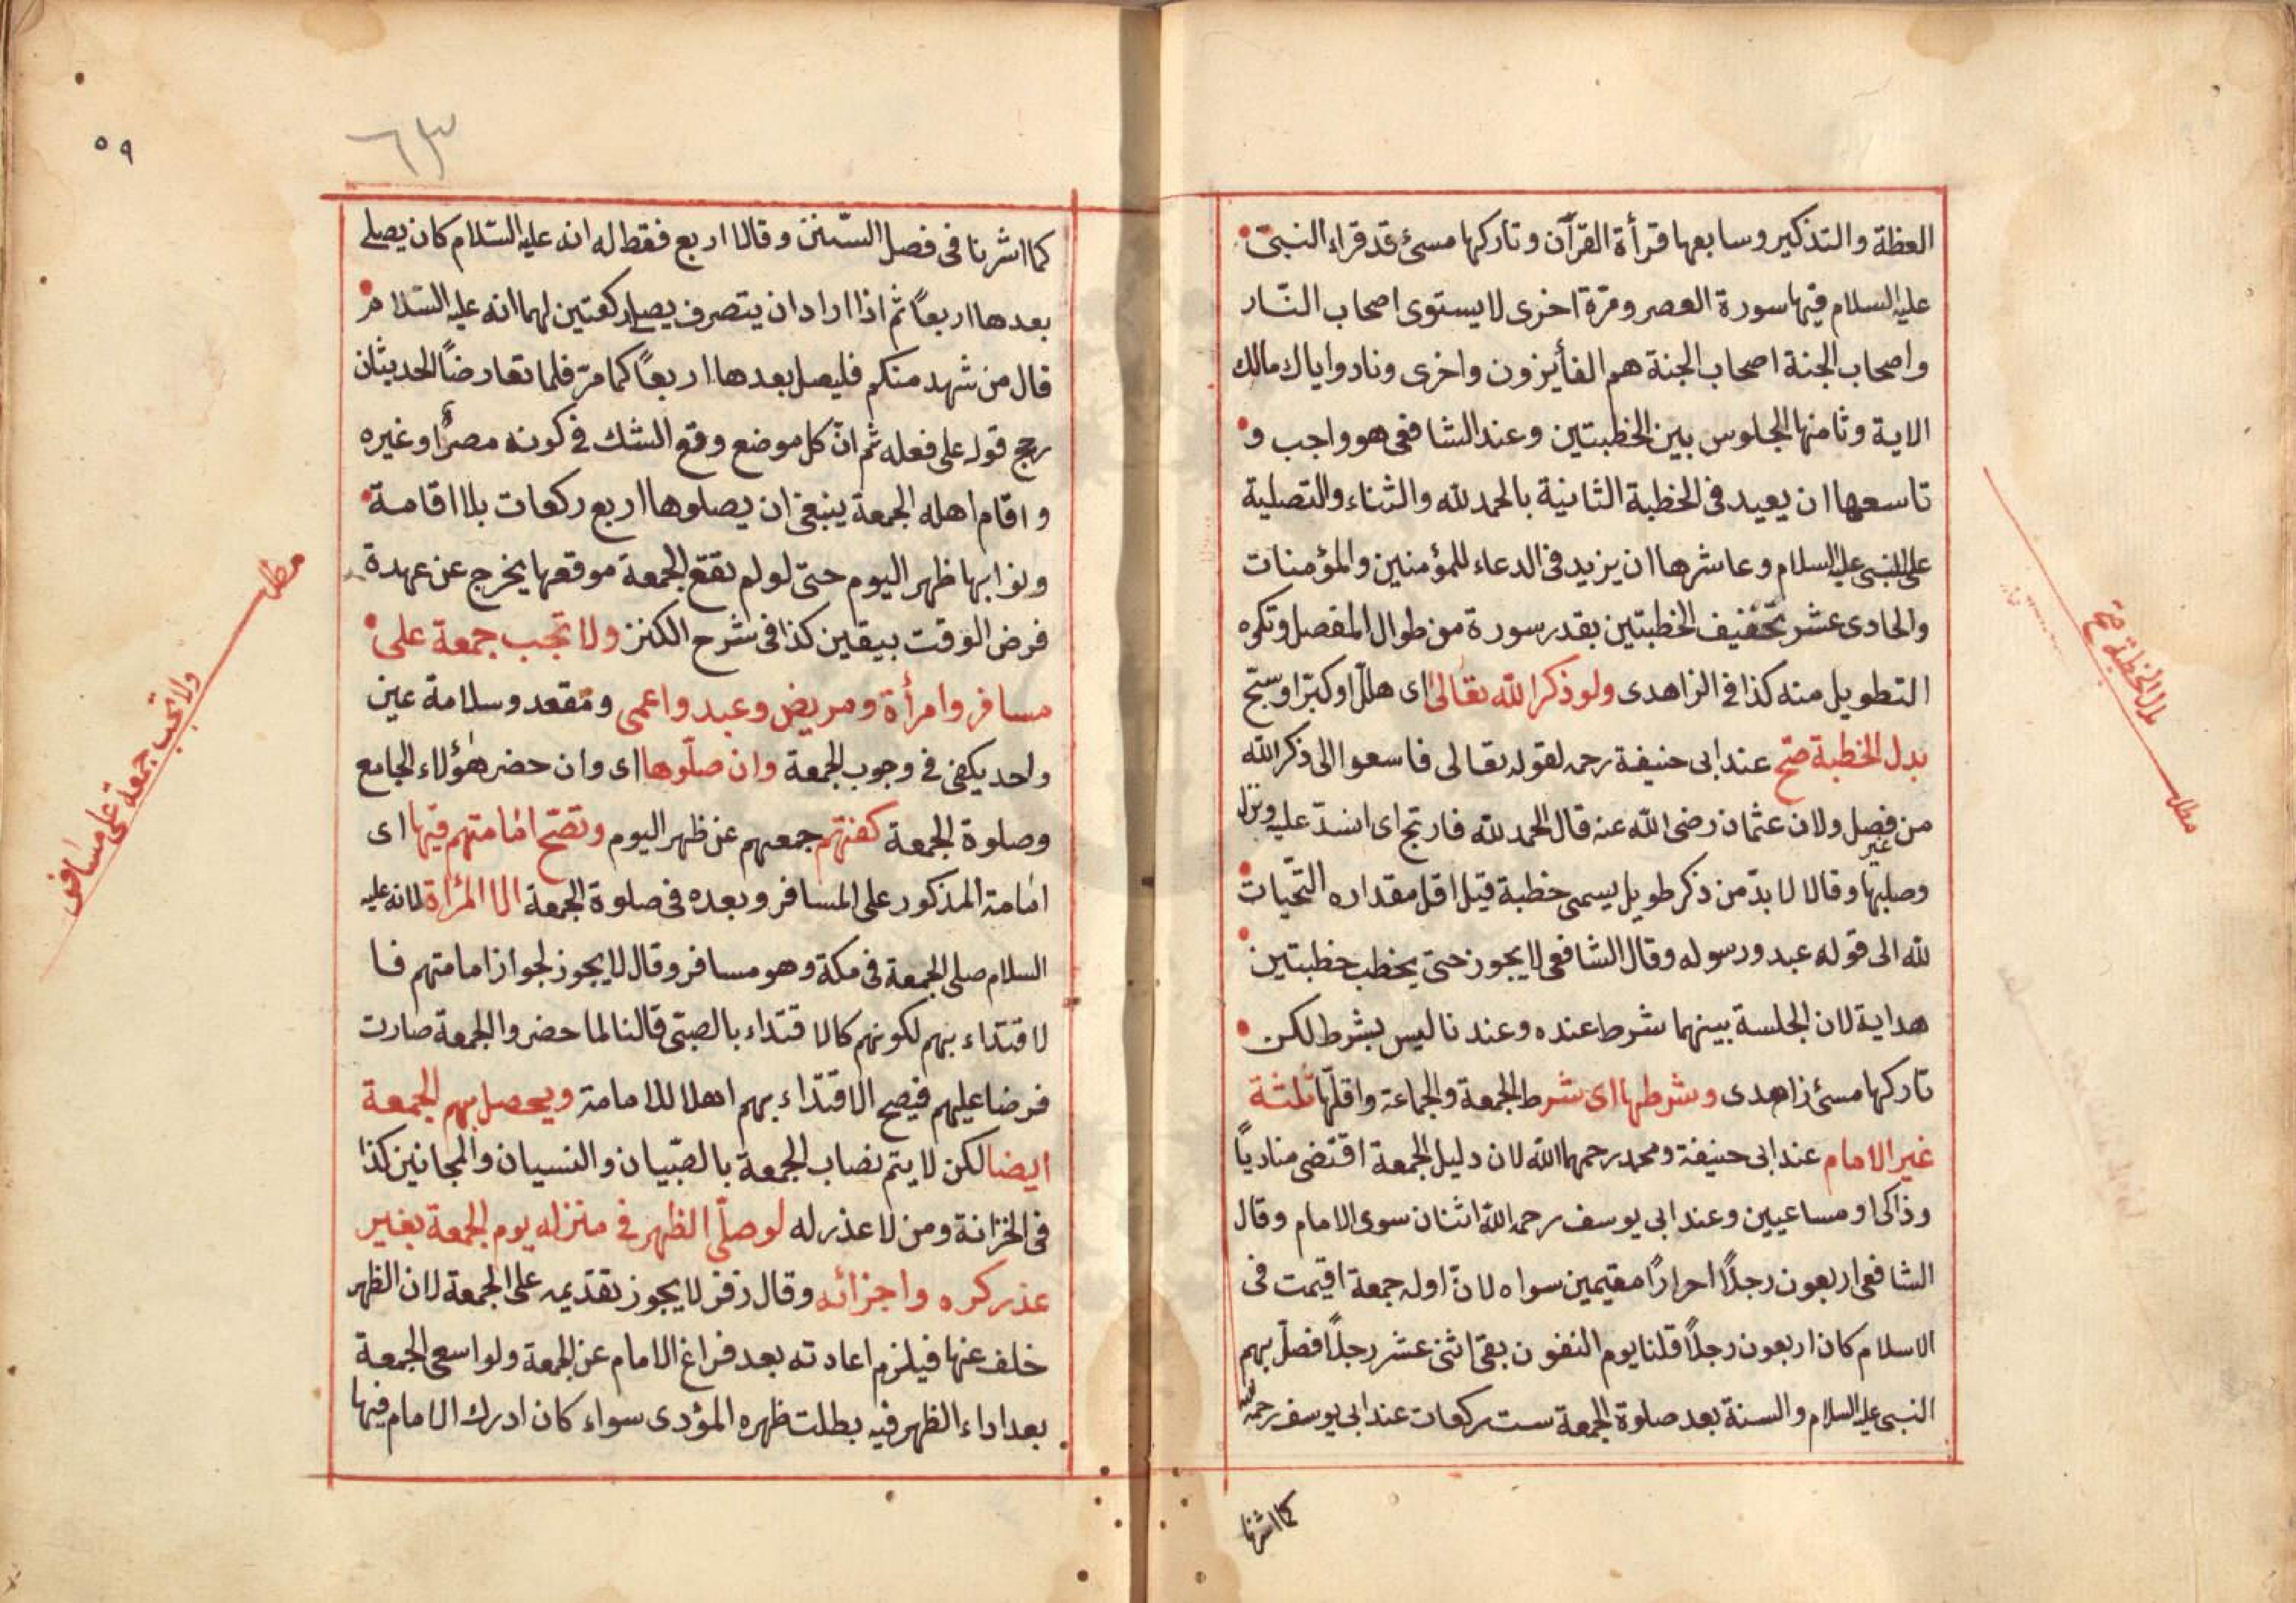 العظة والتذكير وسابعها قرأة القرآن وتاركها مسئ قد قراء النبى
عليه السلام فيها سورة العصر ومرة اخرى لا يستوى اصحاب النار
واصحاب الجنة اصحاب الجنة هم الفأيزون واخرى ونادوا يا مالك
الاية وثامنها الجلوس بين الخطبتين وعند الشافعى هو واجب و
تاسعها ان يعيد فى الخطبة الثانية بالحمد لله والثناء والتصلية
على النبى عليه السلام وعاشرها ان يزيد فى الدعاء للمؤمنين والمؤمنات
والحادى عشر تخفيف الخطبتين بقدر سورة من طوال المفصل وتكره
التطويل منه كذا فى الزاهدى ولو ذكر الله تعالى اى هلل او كبر او سبح
بدل الخطبة صح عند ابى حنيفة رحمه لقوله تعالى فاسعوا الى ذكر الله
من غير فصل ولان عثمان رضى الله عنه قال الحمد لله فارتج اى انسد عليه ونزل
وصليها وقالا لا بد من ذكر طويل يسمى خطبة قيل اقل مقداره التحيات
لله الى قوله عبده ورسوله وقال الشافعى لا يجوز حتى يخطب خطبتين
هداية لان الجلسة بينهما شرط عنده وعندنا ليس بشرط لكن
تاركها مسئ زاهدى وشرطها اى شرط الجمعة والجماعة واقلها ثلثة
غير الامام عند ابى حنيفة ومحمد رحمهما الله لان دليل الجمعة اقتضى مناديا
وذاكرا ومساعيين وعند ابى يوسف رحمه الله اثنان سوى الامام وقال
الشافعى اربعون رجلاً احراراً مقيمين سواه لان اوله جمعة اقيمت فى
الاسلام كان اربعون رجلاً قلنا يوم النفون بقى اثنى عشر رجلاً فصل بهم
النبى عليه السلام والسنة بعد صلوة الجمعة ست ركعات عند ابى يوسف رحمه الله
كما اشرنا
مطلب
بدل الخطبة صح
٥٩
٦٣
كما اشرنا فى فصل السنن وقالا اربع فقط له انه عليه السلام كان يصلى
بعدها اربعاً ثم اذا اراد ان يتصرف يصلى ركعتين لهما انه عليه السلام
قال من شهد منكم فليصل بعدها اربعاً كما مر فلما تعارضاً الحديثان
رجح قوله على فعله ثم ان كل موضع وقع الشك فى كونه مصراً وغيره
واقام اهله الجمعة ينبغى ان يصلوها اربع ركعات بلا اقامة
ونوا بها ظهر اليوم حتى لو لم تقع الجمعة موقعها يخرج عن عهدة
فرض الوقت بيقين كذا فى شرح الكنز ولا تجب جمعة على
مسافر وامرأة ومريض وعبد واعمى ومقعد وسلامة عين
واحد يكفى فى وجوب الجمعة وان صلوها اى وان حضر هؤلاء الجامع
وصلوة الجمعة كفتهم جمعهم عن ظهر اليوم وتصح امامتهم فيها اى
امامة المذكور على المسافر وبعده فى صلوة الجمعة الا المرأة لانه عليه
السلام صلى الجمعة فى مكة وهو مسافر وقال لا يجوز لجواز امامتهم فا
لاقتداء بهم لكونهم كالاقتداء بالصبى قالنا لما حضر والجمعة صارت
فرضا عليهم فيصح الاقتداء بهم اهلا للامامة ويحصل بهم الجمعة
ايضا لكن لا يتم نصاب الجمعة بالصبيان والنسيان والمجانين كذا
فى الخزانة ومن لا عذر له لو صلى الظهر فى منزله يوم الجمعة بغير
عذر كره واجزائه وقال زفر لا يجوز تقديمه على الجمعة لان الظهر
خلف عنها فيلزم اعادته بعد فراغ الامام عن الجمعة ولو اسعى الجمعة
بعد اداء الظهر فيه بطلت ظهره المؤدى سواء كان ادرك الامام فيها
مطلب
ولا تجب جمعة على مسافر